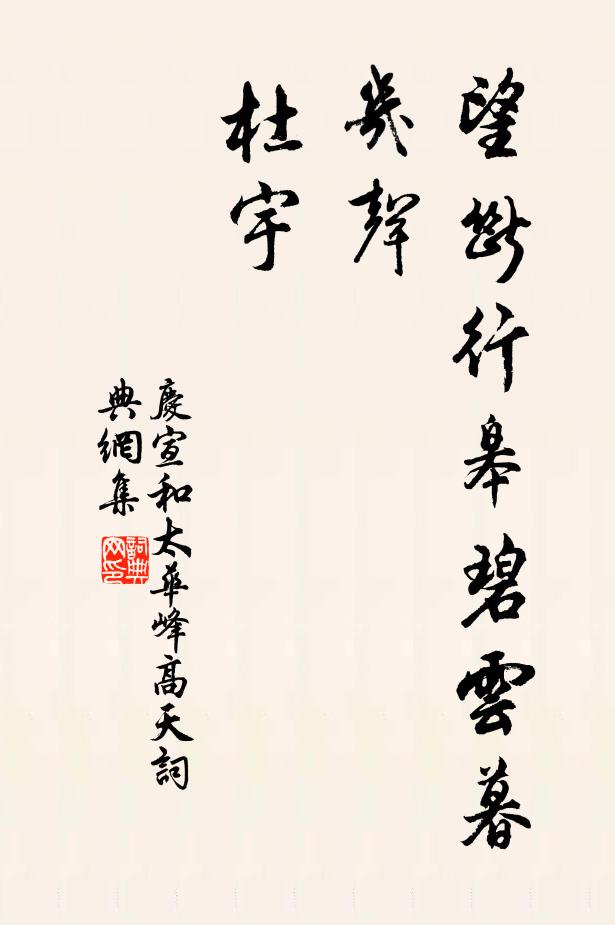 望斷行皋碧雲暮
幾聲
杜宇
慶宣和太華峰高天詞
典網集
詞典
网印